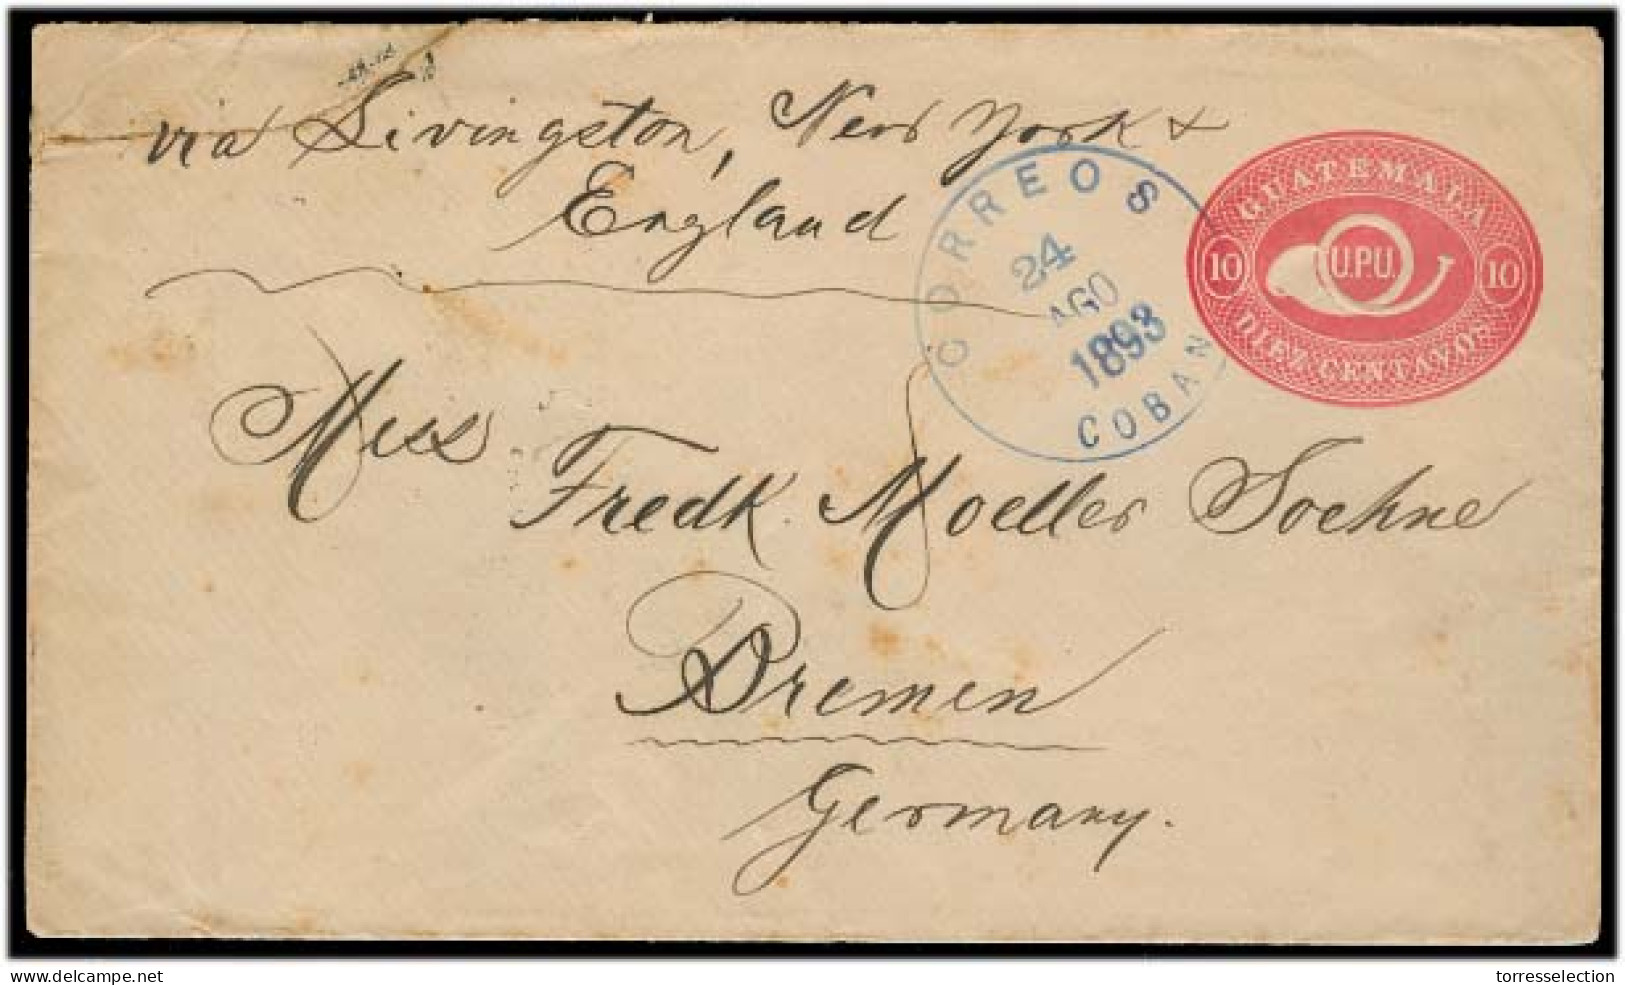 via Livingston, New York &
England
CORREOS
24
AGO
1893
COBAN
GUATEMALA
10 U.P.U. 10
DIEZ CENTAVOS
Mess
Fredk. Moeller Soehne
Bremen
Germany.
www.delcampe.net
torresselection